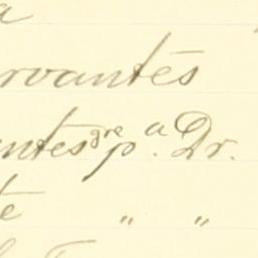 a
rvantes
ntes gre p. a Dr.
te " "